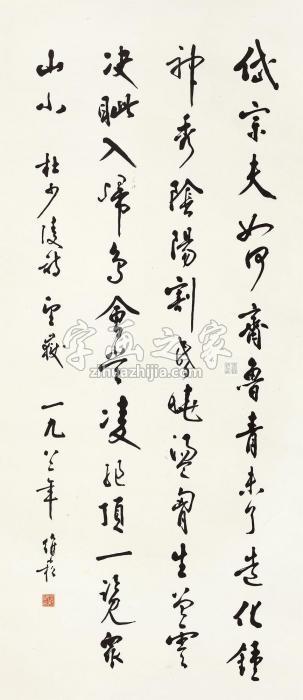 岱宗夫如何齊魯青未了造化鍾
神秀陰陽割昏曉盪胷生曾雲
决眦入歸鳥會當凌絕頂一覽衆
山小 杜少陵詩望嶽 一九八三年
字画之家
zihuazhijia.com